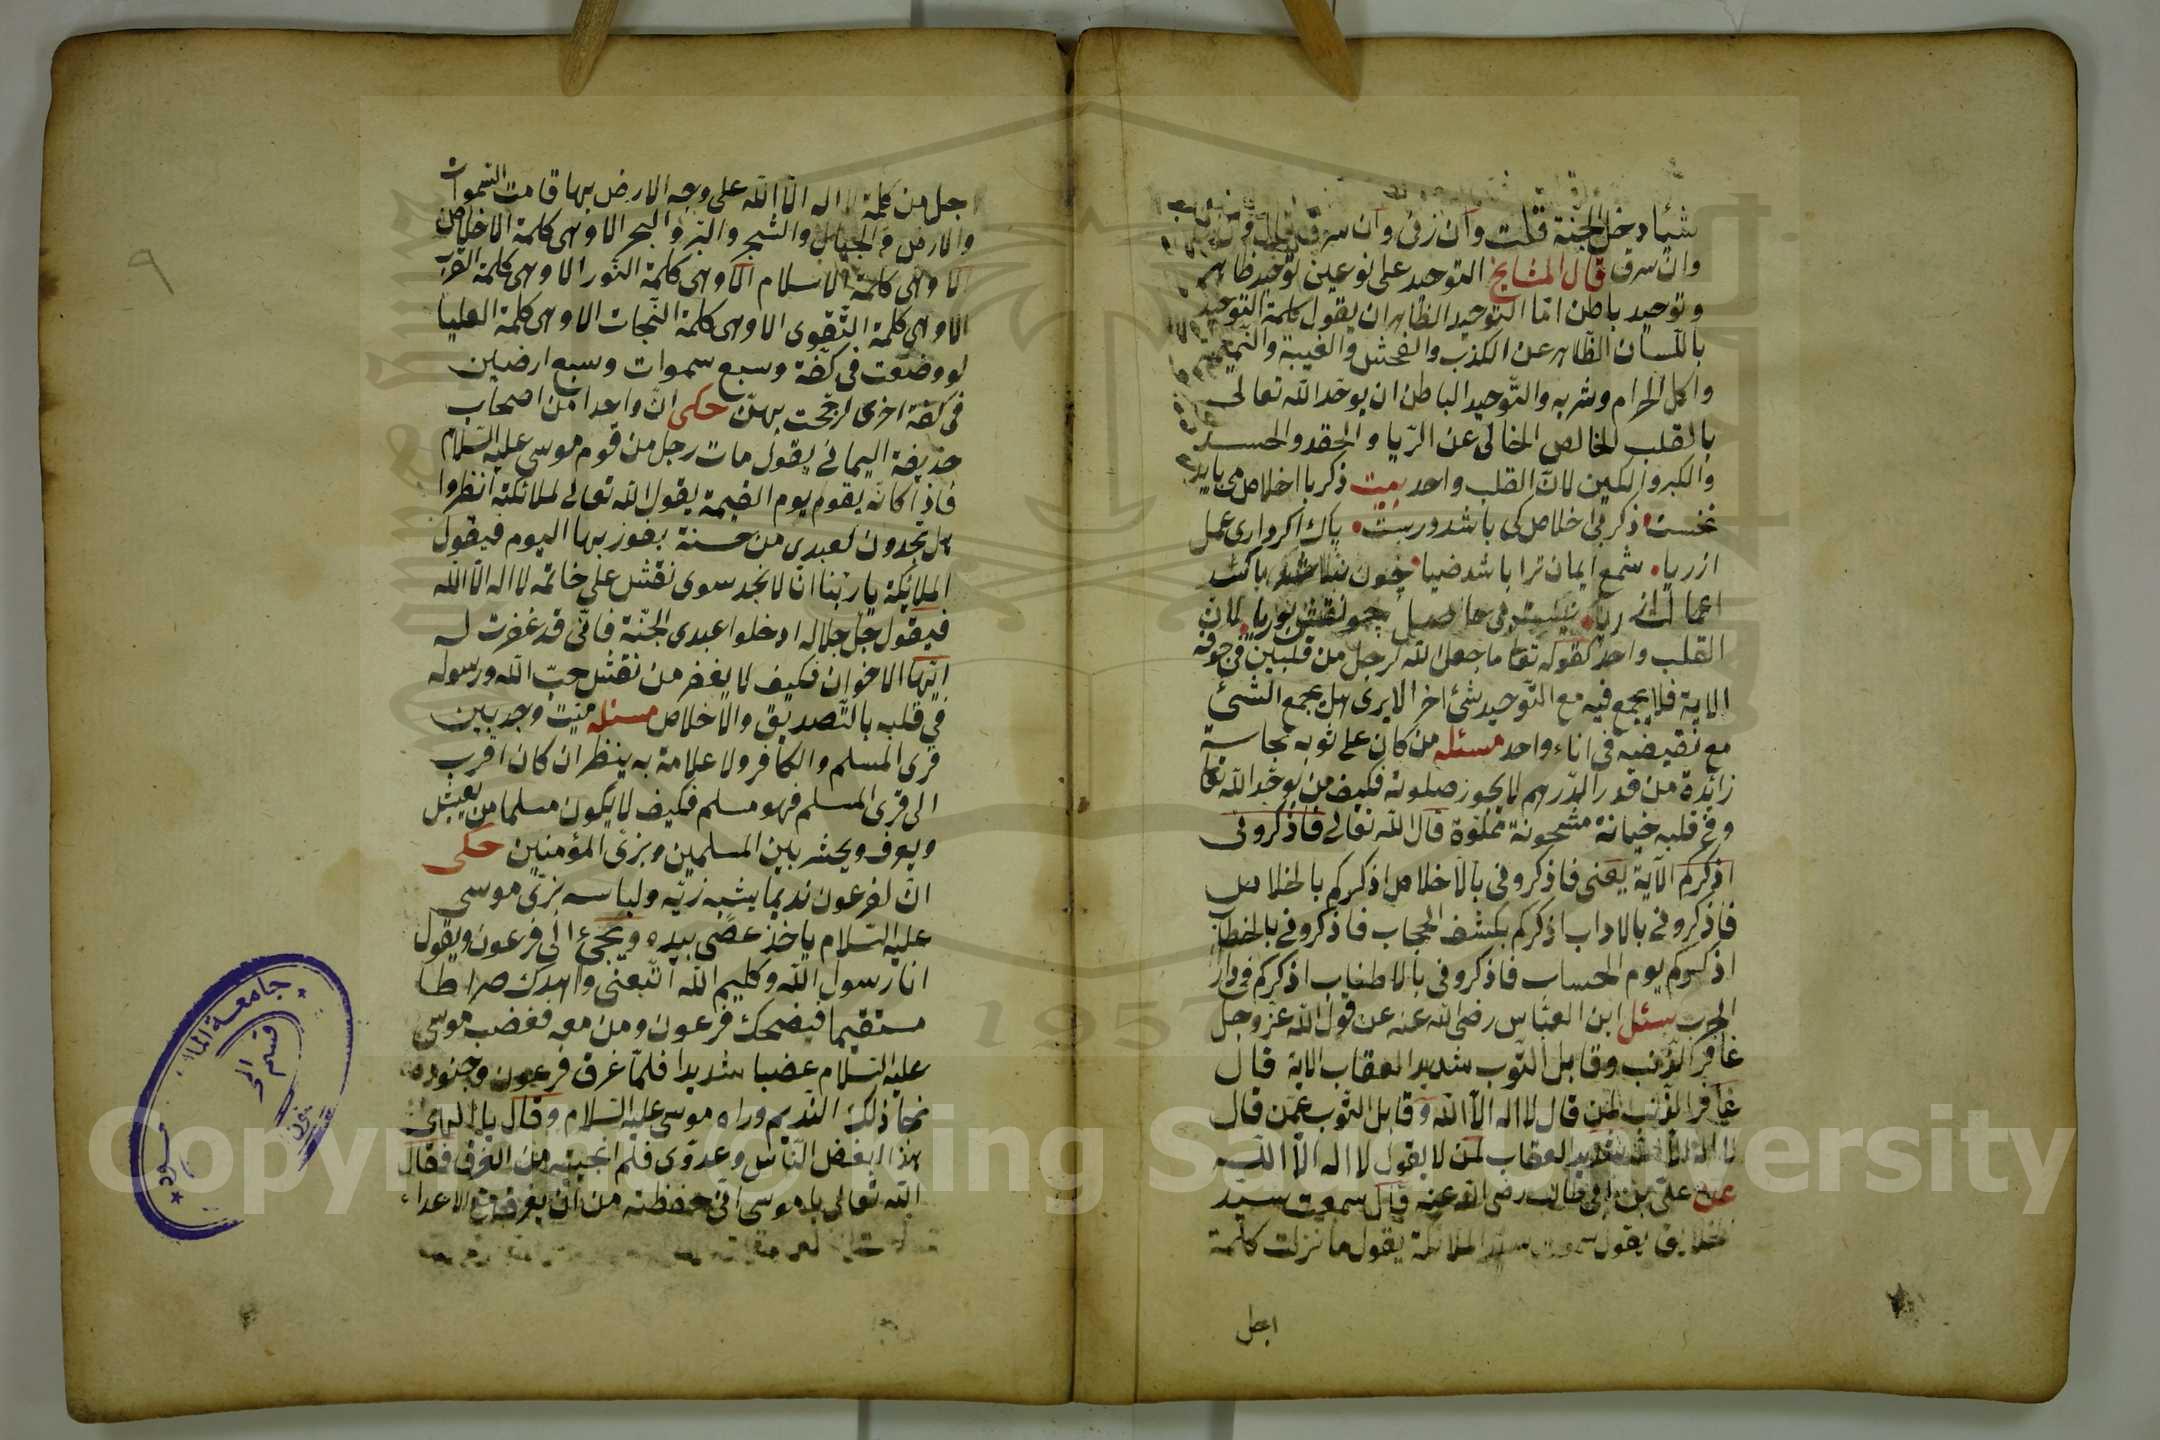 شيأ دخل الجنة قلت وان زنى وان سرق قال وان زنى
وان سرق قال المشايخ التوحيد على نوعين توحيد ظاهر
وتوحيد باطن امّا التوحيد الظاهر ان يقول كلمة التوحيد
باللّسان الظّاهر عن الكذب والفحش والغيبة والنّميمة
واكل الحرام وشربه والتّوحيد الباطن ان يوحّد الله تعالى
بالقلب الخالص الخالى عن الرّيا والحقد والحسد
والكبر والكين لانّ القلب واحد بيت ذكر با اخلاص مى بايد
نخست ذكر بى اخلاص كى باشد درست پاك اكر وارى عمل
از ريا شمع ايمان ترا باشد ضيا چون
اعمالت از ريا نيست بى حاصل چو نقش بوريا لان
القلب واحد كقوله تعا ما جعل الله لرجل من قلبين فى جوفه
الاية فلا يجمع فيه مع التّوحيد شئ اخر الا يرى هل يجمع الشئ
مع نقيضه فى اناء واحد مسئله من كان على ثوبه نجاسة
زائدة من قدر الدّرهم لا يجوز صلوته فكيف من يوحّد الله تعا
وفى قلبه خيانة مشحونة مملوّة قال الله تعالى فاذكرونى
اذكركم الآية يعنى فاذكرونى بالاخلاص اذكركم بالخلاص
فاذكرونى بالاداب اذكركم بكشف الحجاب فاذكرونى بالخطاب
اذكركم يوم الحساب فاذكرونى بالاطناب اذكركم فى دار
سئل ابن العبّاس رضى الله عنه عن قول الله عزّ وجل
غافر الذّنب وقابل التّوب شديد العقاب الاية قال
غافر الذّنب لمن قال لا اله الّا الله وقابل التّوب عمّن قال
لا اله الّا الله شديد العقاب لمن لا يقول لا اله الّا اللّه
عن علىّ بن ابى طالب رضى الله عنه قال سمعت سيّد
الخلايق يقول سمعت سيّد الملائكة يقول ما نزلت كلمة
اجل
اجل من كلمة لا اله الّا الله على وجه الارض بها قامت السّموات
والارض والجبال والشّجر والبرّ والبحر الا وهى كلمة الاخلاص
الا وهى كلمة الاسلام الا وهى كلمة النّور الا وهى كلمة القرب
الا وهى كلمة التّقوى الا وهى كلمة النّجات الا وهى كلمة العليا
لو وضعت فى كفّة وسبع سموات وسبع ارضين
فى كفة اخرى لرجحت بهنّ حكى انّ واحدا من اصحاب
حذيفة اليمانى يقول مات رجل من قوم موسى عليه السّلام
فاذا كانه يقوم يوم القيمة يقول الله تعالى لملائكته انظروا
هل تجدون لعبدى من حسنة يفوز بها اليوم فيقول
الملائكة يا ربّنا انّا لا نجد سوى نقش على خاتمه لا اله الّا الله
فيقول جلّ جلاله ادخلوا عبدى الجنّة فانّى قد غفرت له
ايّها الاخوان فكيف لا يغفر من نقش حبّ الله ورسوله
فى قلبه بالتّصديق والاخلاص مسئله ميّت وجد بين
قرى المسلم والكافر ولا علامة به ينظر ان كان اقرب
الى قرى المسلم فهو مسلم فكيف لا يكون مسلما من يعيش
ويعرف ويحشر بين المسلمين وبزىّ المؤمنين حكى
انّ لفرعون نديما يشبه زيّه ولباسه بزىّ موسى
عليه السّلام ياخذ عصى بيده ويجئ الى فرعون ويقول
انا رسول الله وكليم الله اتّبعنى واهدك صراطا
مستقيما فيضحك فرعون ومن معه فغضب موسى
عليه السّلام غضبا شديدا فلمّا غرق فرعون وجنوده
نجا ذلك النّديم وراه موسى عليه السّلام وقال يا الهى
هذا ابغض النّاس وعدوّى فلم انجيته من الغرق فقال
اللّه تعالى يا موسى انّى حفظته من ان يغرق مع الاعداء
٩
جامعة الملك سعود
قسم
Copyright © King Saud University
1957